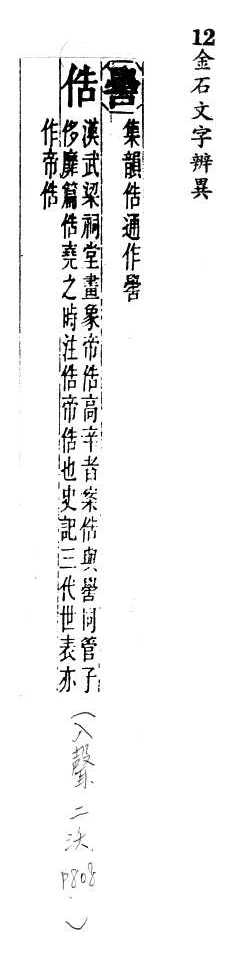 12金石文字辨異
嚳
集韻俈通作嚳
俈
漢武梁祠堂畫象帝俈高辛者案俈與嚳同管子
侈靡篇俈堯之時注俈帝俈也史記三代世表亦
作帝俈
(入聲二沃 p808)